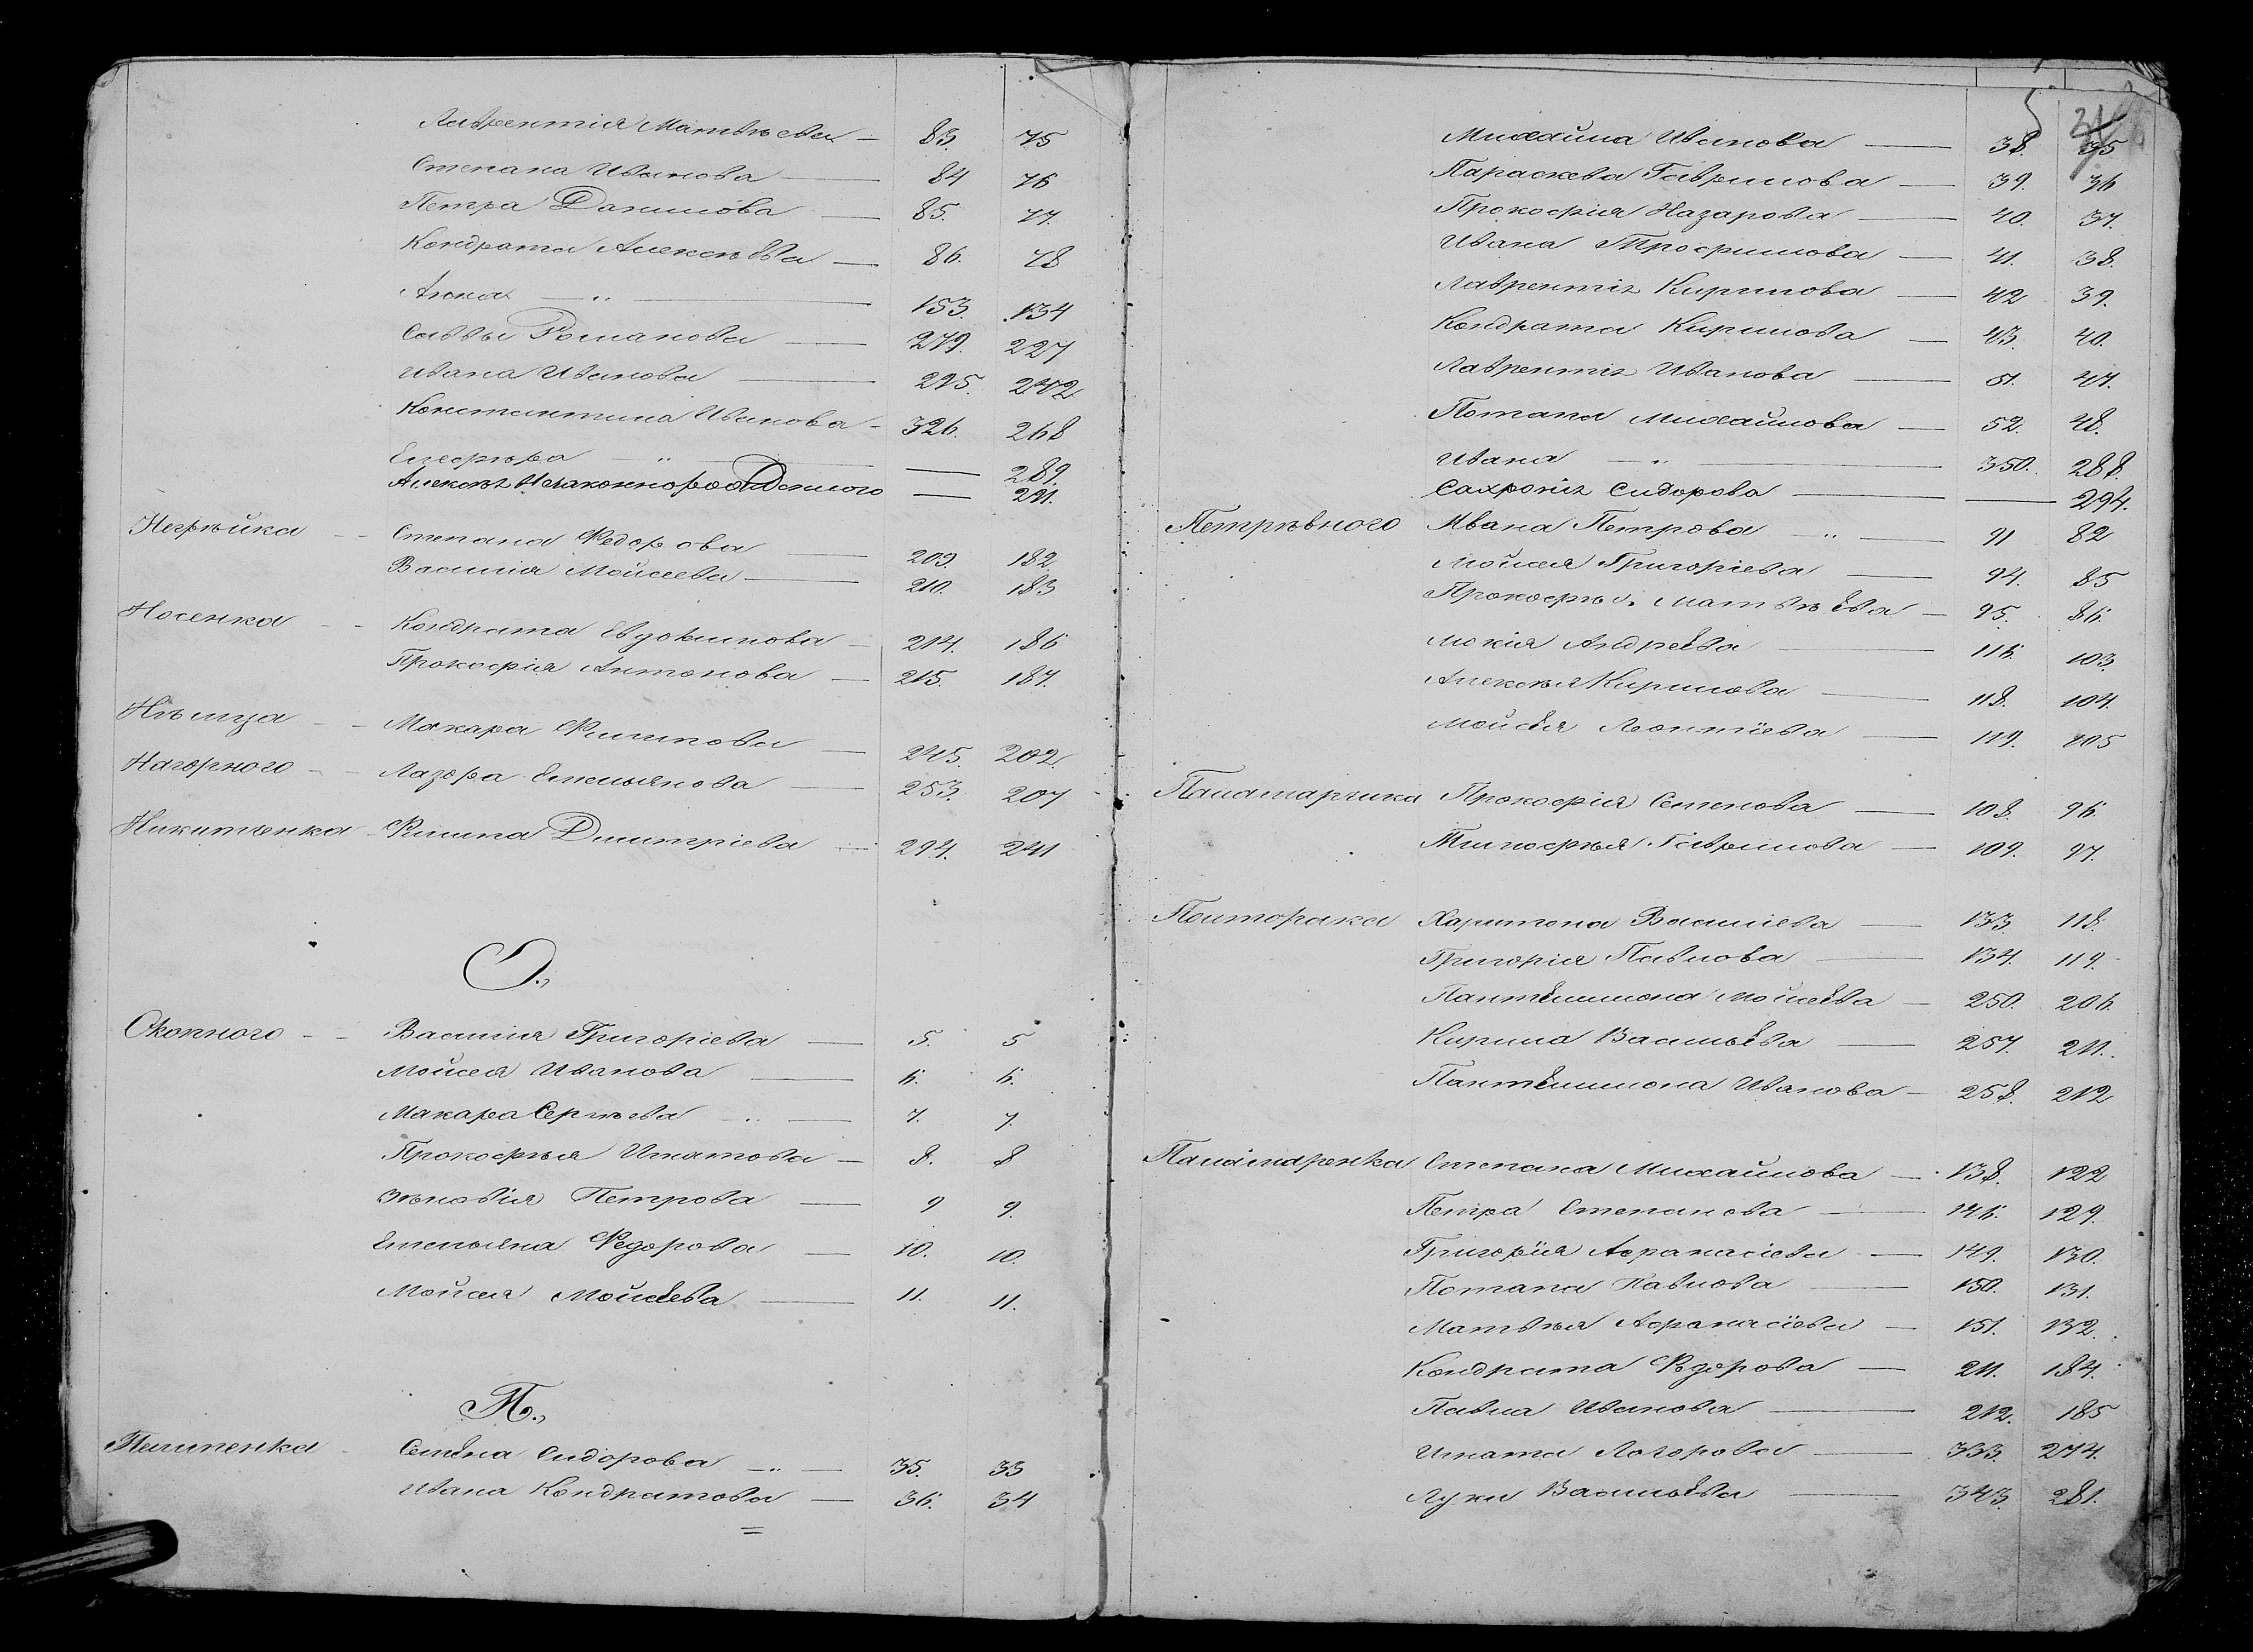 Лаврентія Матвѣева — 83. 75
Степана Иванова — 84 76
Петра Данилова — 85. 77.
Кондрата Алексѣева — 86. 78
Анна — „ — 153. 134
Саввы Романова — 279. 227
Ивана Иванова — 295. 242
Константина Иванова — 326. 268
Елефѣра — „ — — 289.
Алексѣя Незаконнорожденного — 291.
Негрѣйка — Степана Федорова — 209. 182.
Василія Мойсеева — 210. 183
Носенка — Кондрата Евдокимова — 214. 186
Прокофія Антонова — 215. 187.
Нѣмца — Макара Филипова — 245. 202.
Нагорного — Лазора Емельянова — 253. 207
Никитенка — Филипа Дмитріева — 294. 241
О.,
Окопного — Василія Григоріева — 5. 5
Мойсея Иванова — 6. 6.
Макара Сергѣева — „ — 7. 7.
Прокофѣя Игнатова — 8. 8
Зѣновія Петрова — 9 9.
Емельяна Федорова — 10. 10.
Мойсея Мойсеева — 11. 11.
П.,
Пилипенка — Семена Сидорова — „ — 35. 33
Ивана Кондратова — 36. 34
=
5 31
Михайла Иванова — 38. 35
Параскева Гаврилова — 39. 36
Прокофія Назарова — 40. 37.
Ивана Трофимова — 41. 38.
Лаврентія Кирилова — 42 39.
Кондрата Кирилова — 43. 40.
Лаврентія Иванова — 51. 47.
Потапа Михайлова — 52. 48.
Ивана — „ — 350. 288.
Сахронія Сидорова — 294.
Петрѣвного Ивана Петрова — „ — 91 82
Мойсея Григоріева — 94. 85
Прокофѣя Матвѣева — 95. 86.
Мокія Андреева — 116. 103.
Алексѣя Кирилова — 118. 104.
Мойсея Леонтіева — 119. 105
Паламарчика Прокофія Семенова — 108. 96.
Тимофѣя Гаврилова — 109. 97.
Полторака Харитона Василіева — 133. 118.
Григорія Павлова — 134. 119.
Пантелимона Мойсеева — 250. 206.
Кирила Васильева — 257. 211.
Пантелимона Иванова — 258. 212
Паламаренка Степана Михайлова — 138. 122
Петра Степанова — 146. 129.
Григорія Афанасіева — 149. 130.
Потапа Павлова — 150. 131.
Матвѣя Афанасіева — 151. 132.
Кондрата Федорова — 211. 184.
Павла Иванова — 212. 185
Игната Логорова — 333. 274.
Луки Васильева — 343. 281.